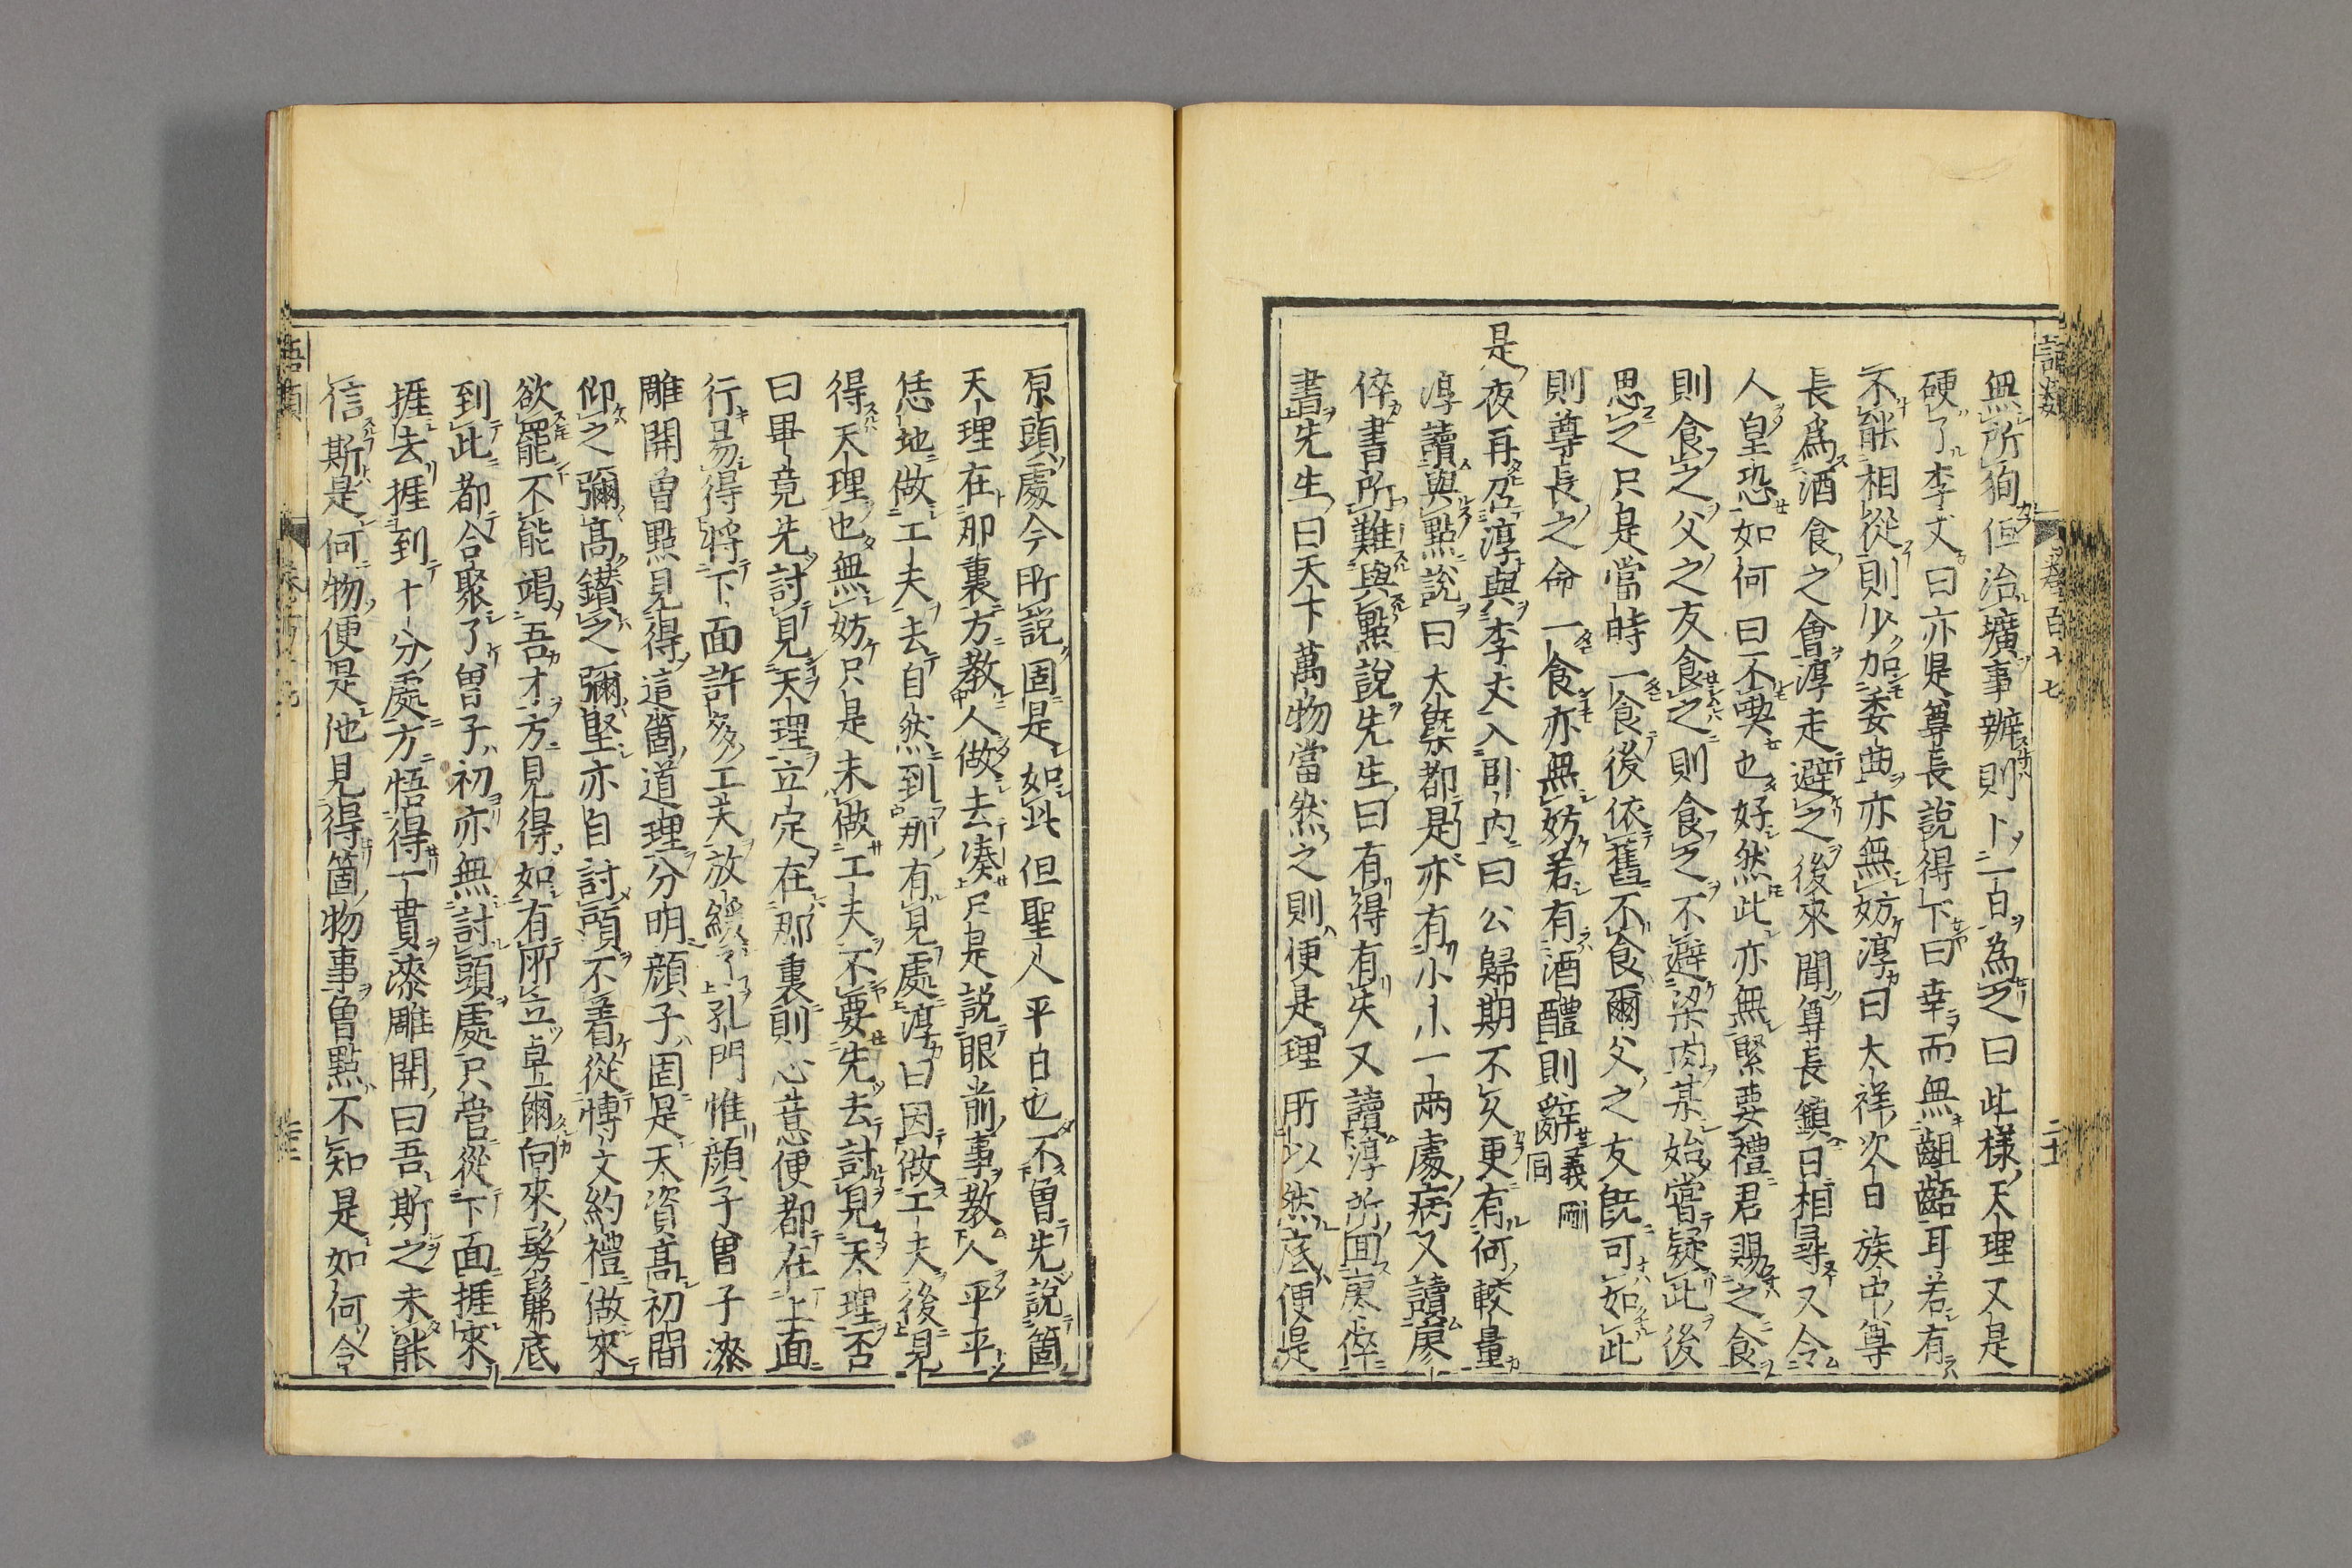 語類 卷百十七 二十一
無所狥但治壙事辦則卜一日為之曰此様天理又是
硬了李丈曰亦是尊長說得下曰幸而無齟齬耳若有
不能相從則少加委曲亦無妨淳曰大祥次日族中尊
長爲酒食之會淳走避之後來聞尊長鎭日相尋又令
人皇恐如何曰不喫也好然此亦無緊要禮君賜之食
則食之父之友食之則食之不避粱肉某始嘗疑此後
思之只是當時一食後依舊不食爾父之友旣可如此
則尊長之命一食亦無妨若有酒醴則辭義剛同
是夜再召淳與李丈入卧内曰公歸期不久更有何較量
淳讀與點說曰大槩都是亦有小小一兩處病又讀廖
倅書所難與點說先生曰有得有失又讀淳所回廖倅
書先生曰天下萬物當然之則便是理所以然底便是
原頭處今所說固是如此但聖人平日也不曾先說箇
天理在那裏方教人做去湊只是說眼前事教人平平
恁地做工夫去自然到那有見處淳曰因做工夫後見
得天理也無妨只是未做工夫不要先去討見天理否
曰畢竟先討見天理立定在那裏則心意便都在上面
行易得將下面許多工夫放緩了孔門惟顔子曾子漆
雕開曾點見得這箇道理分明顔子固是天資高初間
仰之彌高鑚之彌堅亦自討頭不着從愽文約禮做來
欲罷不能竭吾才方見得如有所立卓爾向來髣髴底
到此都合聚了曾子初亦無討頭處只管從下面捱來
捱去捱到十分處方悟得一貫漆雕開曰吾斯之未能
信斯是何物便是他見得箇物事曾點不知是如何合
語類